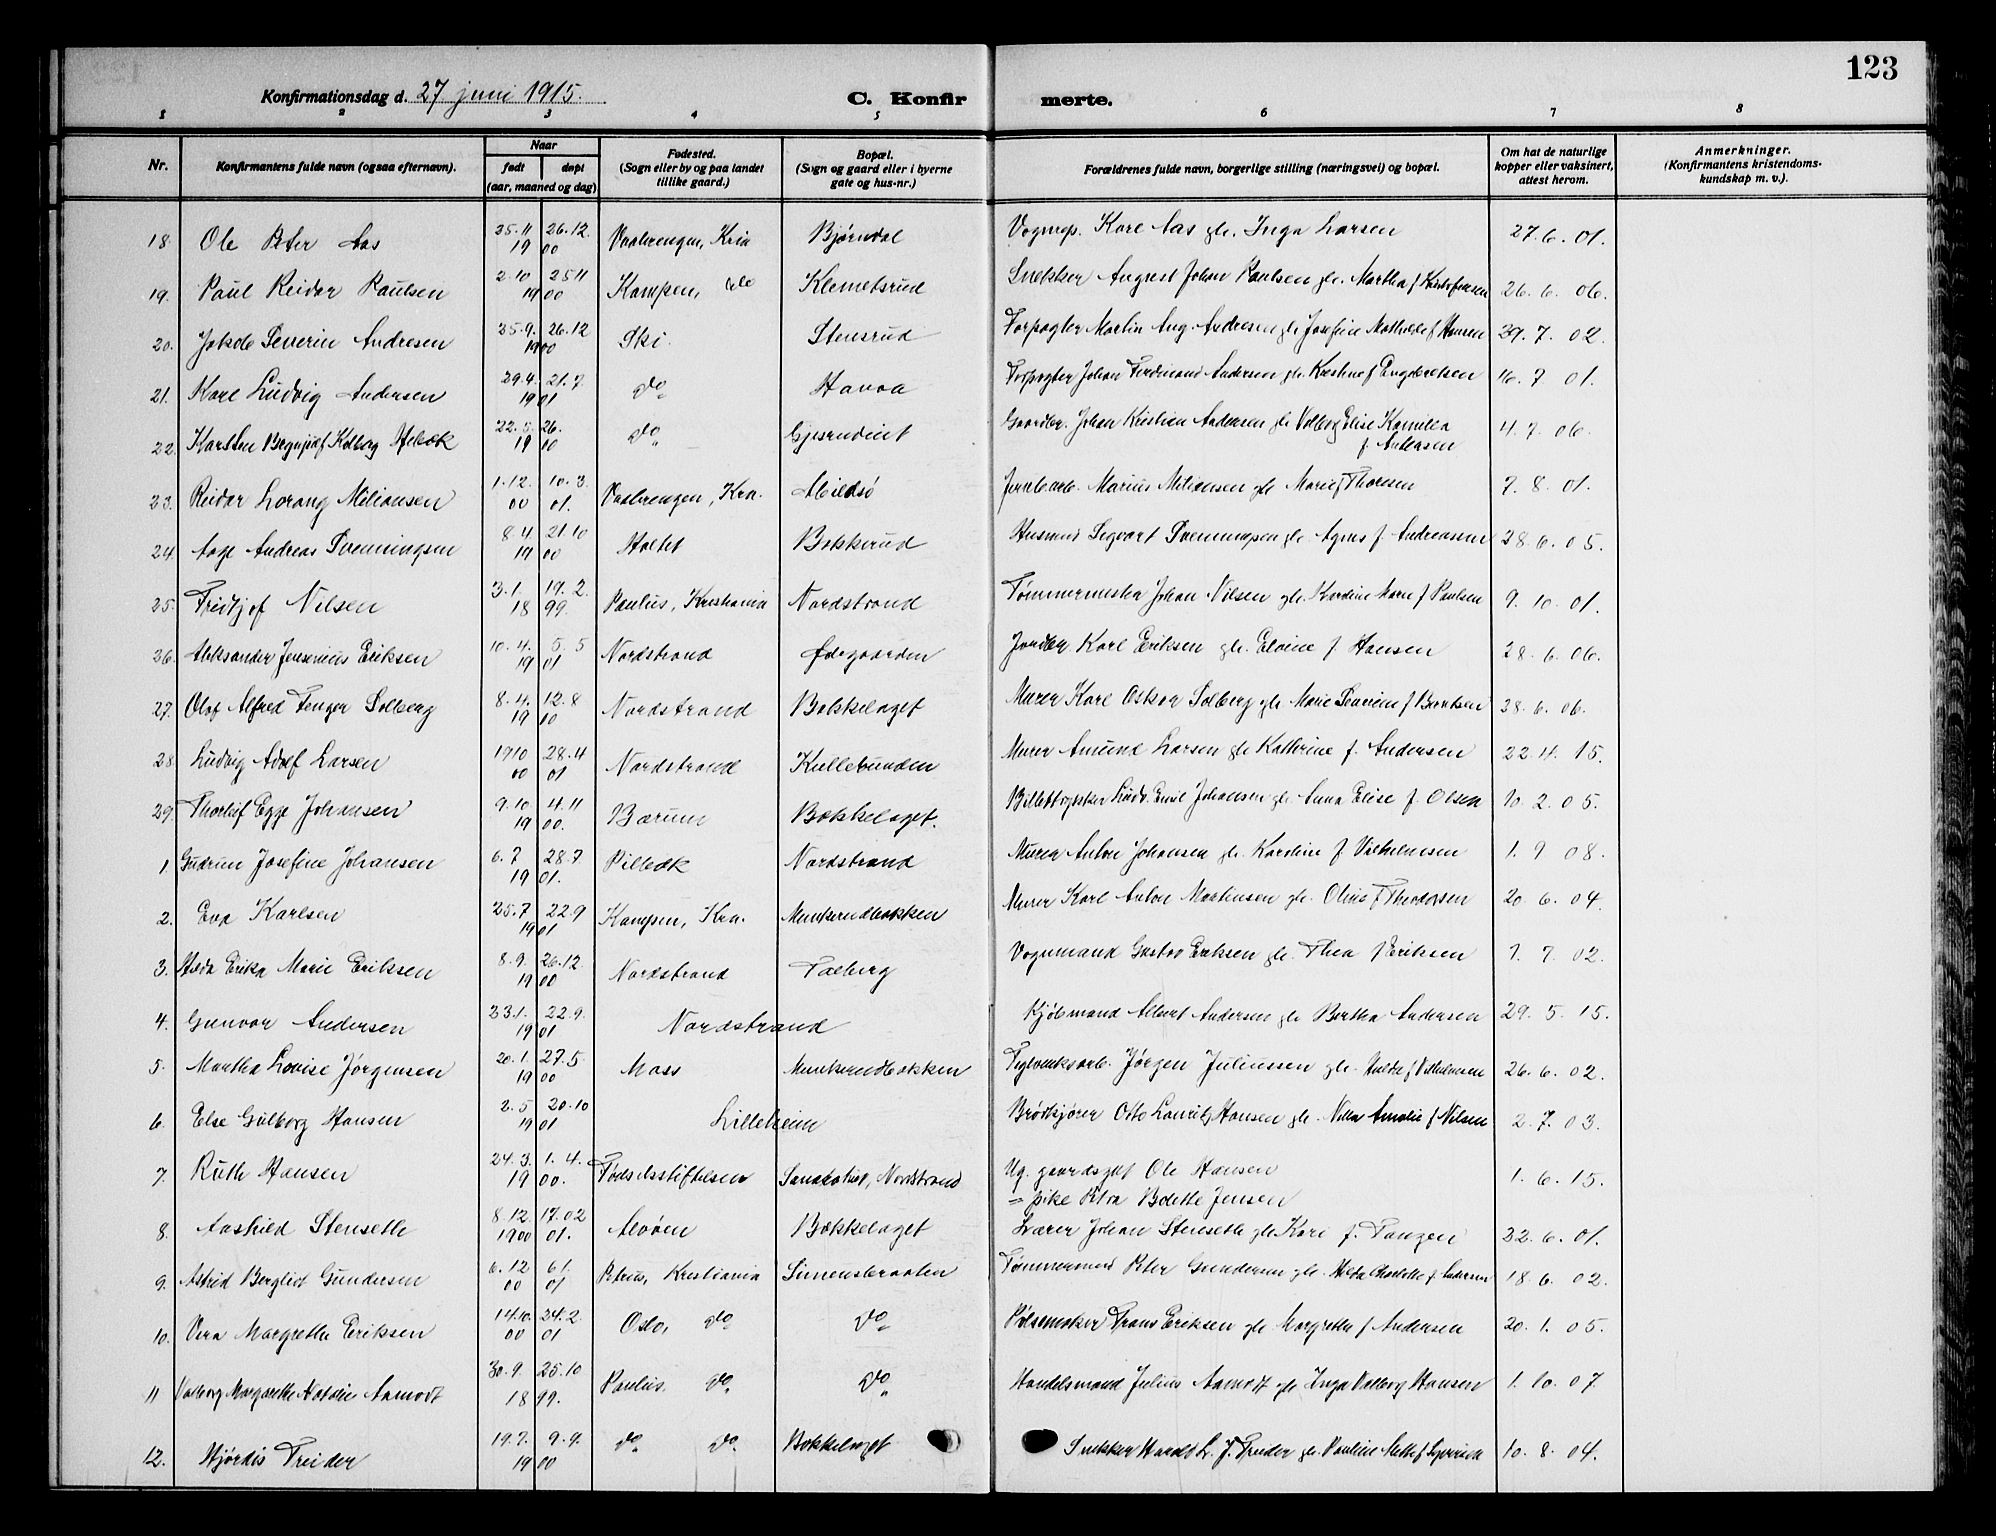 123
Konfirmationsdag d. 27 juni 1915.
C. Konfir merte.
1 2 3 4 5 6 7 8
Nr. Konfirmantens fulde navn (ogsaa efternavn). Naar født døpt (aar, maaned og dag) Fødested. (Sogn eller by og paa landet tillike gaard.) Bopæl. (Sogn og gaard eller i byerne gate og hus-nr.) Forældrenes fulde navn, borgerlige stilling (næringsvei) og bopæl. Om hat de naturlige kopper eller vaksinert, attest herom. Anmerkninger. (Konfirmantens kristendoms-kundskap m. v.).
18. Ole Peter Aas 25.11 26.12. 19 00 Vaalerengen, Kria Bjørndal Vognmp. Karl Aas glr. Inga Larsen 27.6.01.
19. Paul Reidar Paulsen 2.10 25 11 19 00 Kampen, do Klemetsrud Snekker August Johan Paulsen glr. Martha f Kristofersen 26.6.06.
20. Jakob Severin Andresen 25.9. 26.12 1900 Ski. Stensrud Forpagter Martin Aug. Andresen glr Josefine Mathilde f Hansen 29.7.02.
21. Karl Ludvig Andersen 29.4. 21.7 19 01 do Forpagter Johan Ferdinand Andersen glr. Kristine f Engebretsen 16.7 01.
22. Karsten 22.5. 26. 19 10 do Gjersrudeiet Gaardbr. Johan Kristian Andersen glr Valborg Elise Kamilla f. Andersen 4.7 06.
23. Reidar Lorang Miliansen 1.12. 10.3. 00 01. Vaalerengen, Kra. Abildsø Jernb.arb. Marius Miliansen glr Marie f Thoresen 7.8.01.
24. Aage Andreas Svenningsen 8.4. 21.10 19 00 Holtet Bekkerud Husmand Sigvart Svenningsen glr. Agnes f. Andreassen 28.6.05.
25. Fridtjof Nilsen 3.1. 19.2. 18 99. Paulus, Kristiania Nordstrand Tømmermester Johan Nilsen glr. Kardine Marie f Paulsen 9.10.01.
26. Aleksander Jensenius Eriksen 10.4. 5.5 19 01 Nordstrand Ødegaarden Jordbr. Karl Eriksen glr. Elvine f. Hansen 28.6.06.
27. Olaf Alfred Fenger Solberg 8.4. 12.8 19 10 Nordstrand Bækkelaget Murer Karl Oskar Solberg glr. Marie Severine f Berntsen 28.6.06.
28. Ludvig Adolf Larsen 19 10 28.4 00 01 Nordstrand Kullebunden Murer Amund Larsen glr Kathrine f. Andersen 22.4.15.
29. Thorleif Egge Johansen 9.10 4.11 19 00. Bærum Bækkelaget. Billettvgsker Ludv. Emil Johansen glr. Anna Elise f. Olsen 10.2.05.
1. Gudrun Josefine Johansen 6.7 28.7 19 01. Pilbæk Nordstrand Murer Anton Johansen glr. Karoline f Vilhelmsen 1.9 08.
2. Eva Karlsen 25.7 22.9 19 01 Kampen, Kra. Munkerudbakken Murer Karl Anton Martinsen glr. Oline f Theodorsen 20.6.04.
3. Hilda Erika Marie Eriksen 8.9. 26.12. 19 00 Nordstrand Talberg Vognmand Gustav Eriksen glr. Thea f Eriksen 1.7.02.
4. Gunvor Andersen 23.1. 22.9. 19 01 Nordstrand Kjøbmand Albert Andersen glr Bertha Andersen 29.5.15.
5. Martha Lovise Jørgensen 20.1. 27.5 19 00 Moss Munkerudbakken Teglverksarb. Jørgen Juliussen glr. Hulda f Vilhelmsen 26.6.02.
6. Else Gulborg Hansen 2.5 20.10 19 01 Lilleheim Brødkjører Otto Lauritz Hansen glr. Nilla Amalie f Nilsen 2.7.03.
7. Ruth Hansen 24.3. 1.4. 19 00. Fødselsstiftelsen Sanatoriet, Nordstrand Ug. gaardsgut Ole Hansen 1.6.15.
= pike Petra Bolette Jensen
8. Aashild Stenseth 8.12. 17.02 1900 01. Alvøen Bækkelaget Lærer Johan Stenseth glr Kari f. Tangen 22.6.01.
9. Astrid Bergliot Gundersen 6.12 6 1. 00 01 Petrus, Kristiania Simensbraaten Tømmermand Peter Gundersen glr. Hilda Charlotte f. Andersen 18.6.02.
10. Vera Margrethe Eriksen 14.10. 24.2. 00 01 Oslo, do do Pølsemaker Frans Eriksen glr Margrethe f Andersen 20.1.05.
11 Valborg Margarethe Natalie Aamodt 30.9. 25.10 18 99. Paulus. do do Handelsmand Julius Aamodt glr Inga Valborg Hansen 1.10.07
12. Hjørdis Treider 19.7. 9.9. 19 00 do do Bækkelaget Snekker Harald L. J. Treider glr. Pauline Mette f 10.8.04.